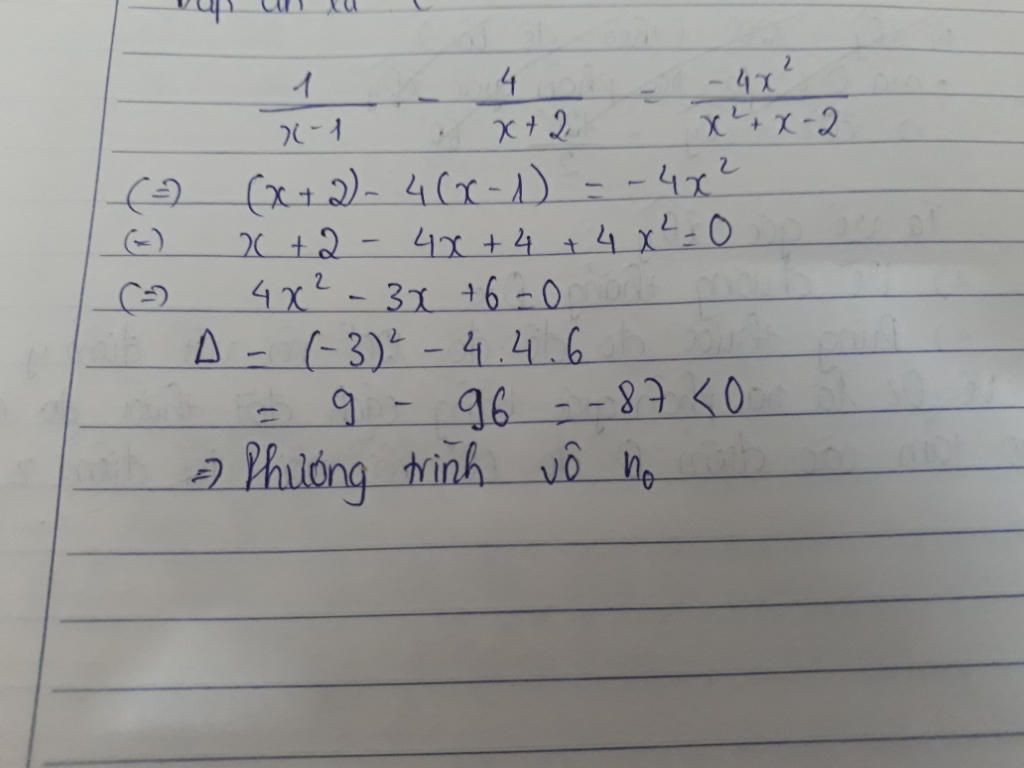 1/(x-1) - 4/(x+2) = -4x²/(x²+x-2)
(=) (x+2) - 4(x-1) = -4x²
(=) x + 2 - 4x + 4 + 4x² = 0
(=) 4x² - 3x + 6 = 0
Δ = (-3)² - 4.4.6
= 9 - 96 = -87 < 0
=> Phương trình vô n₀